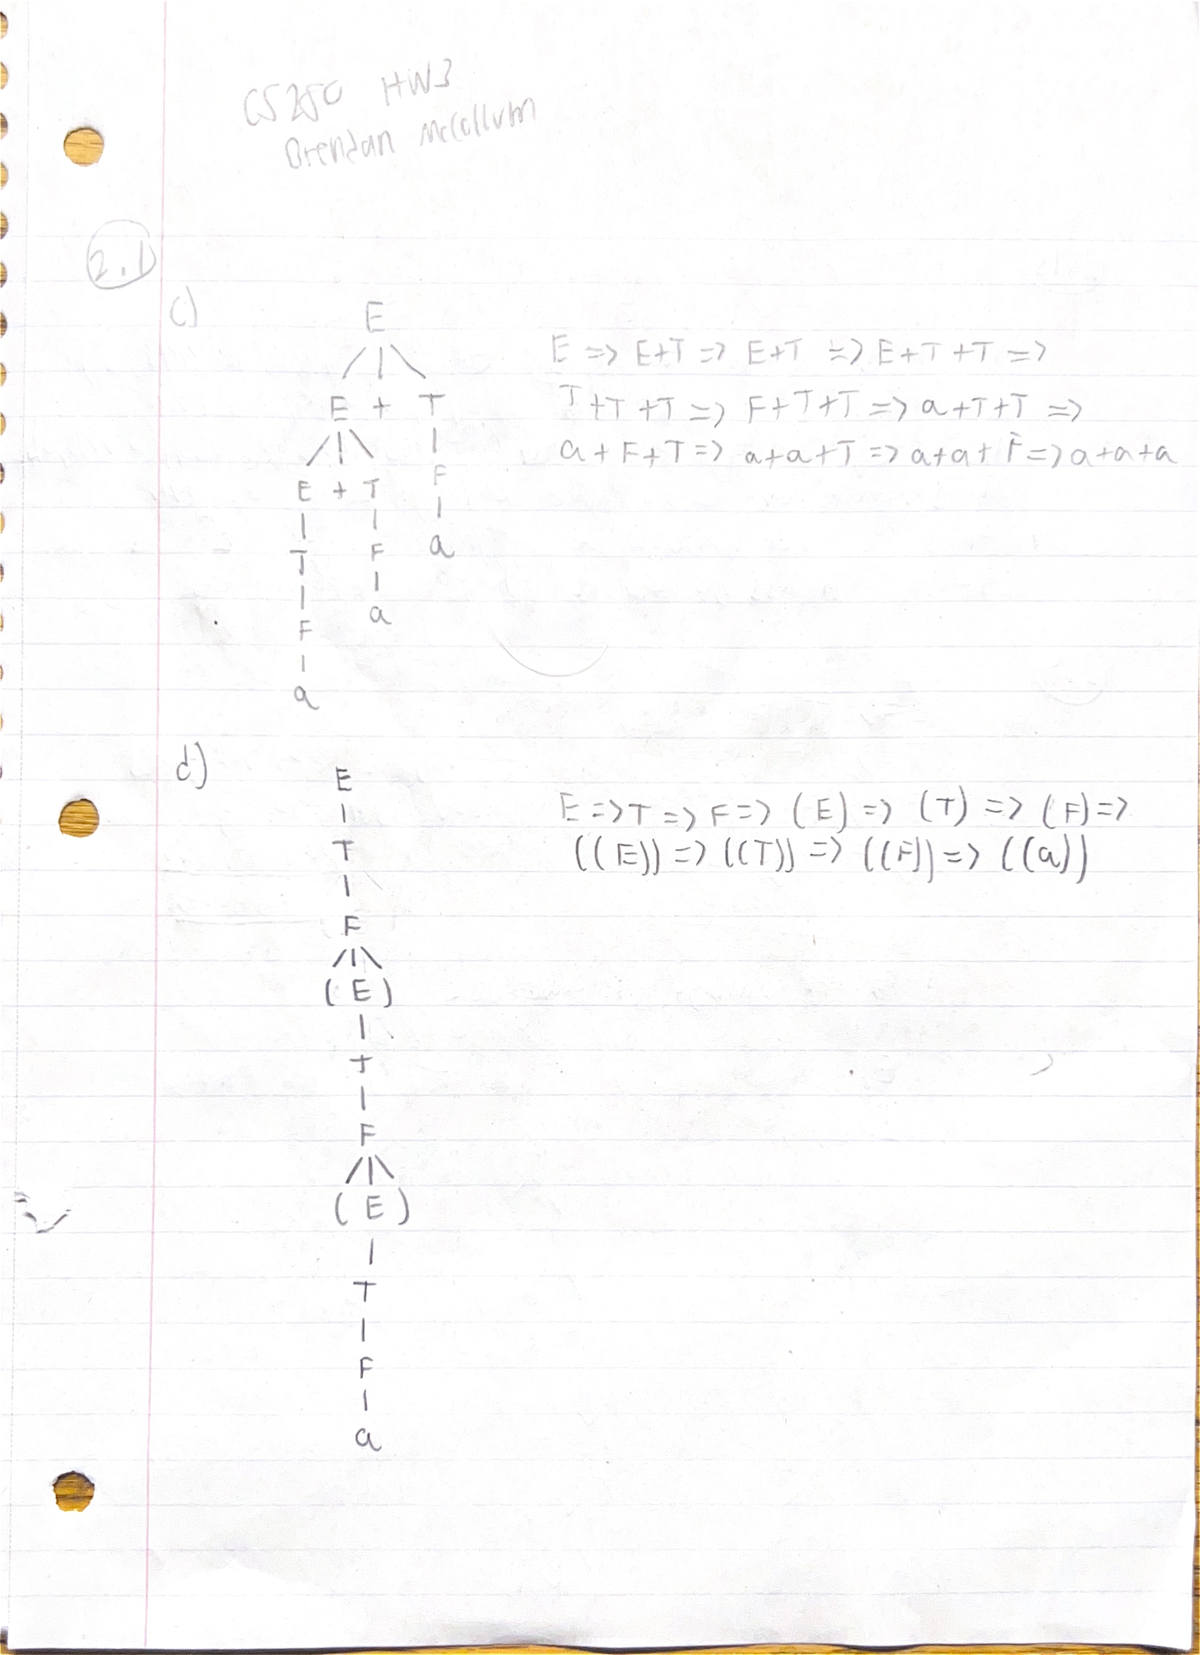 CS 250 HW3
Brendan McCollum
2.1
c)
E
E + T
E + T F
T F a
F a
a
E => E+T => E+T => E+T+T =>
T+T+T => F+T+T => a+T+T =>
a+F+T => a+a+T => a+a+F => a+a+a
d)
E
T
F
( E )
T
F
( E )
T
F
a
E => T => F => (E) => (T) => (F) =>
((E)) => ((T)) => ((F)) => ((a))